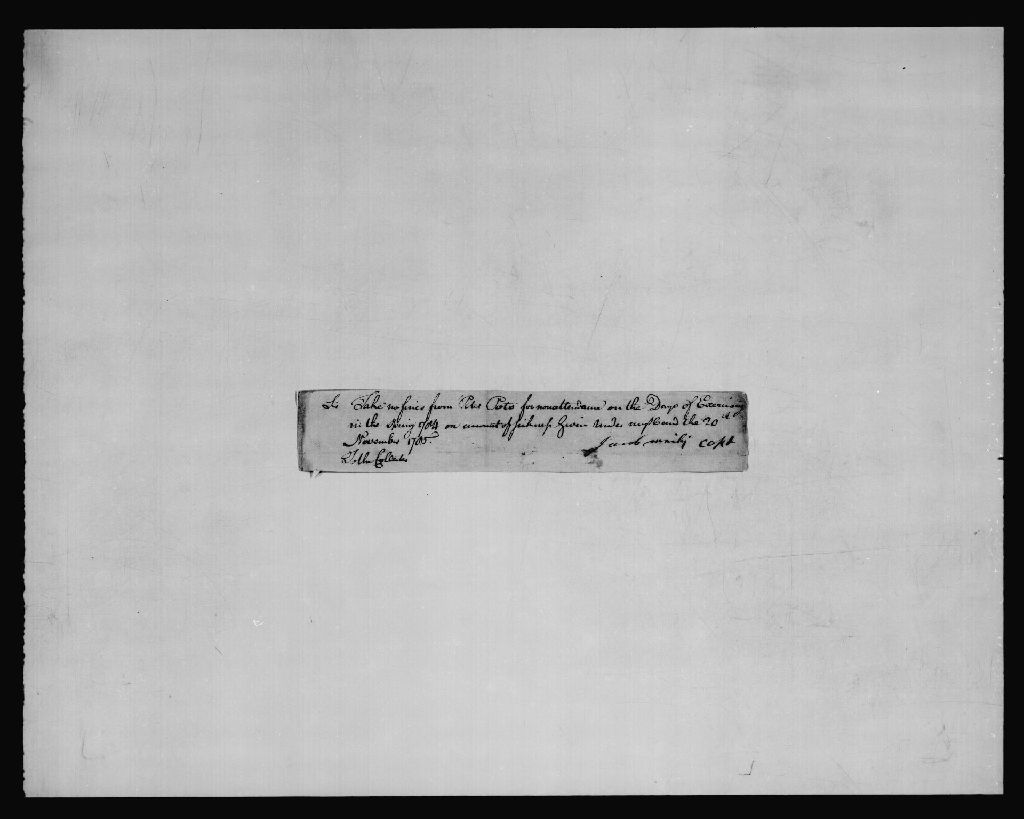 Sr Take no fines from Petr Roto for nonattendance on the Days of Exercising
in the Spring 1784 on acount of sickness Given under my hand the 20th
November 1785
To the Collector
Jacob capt